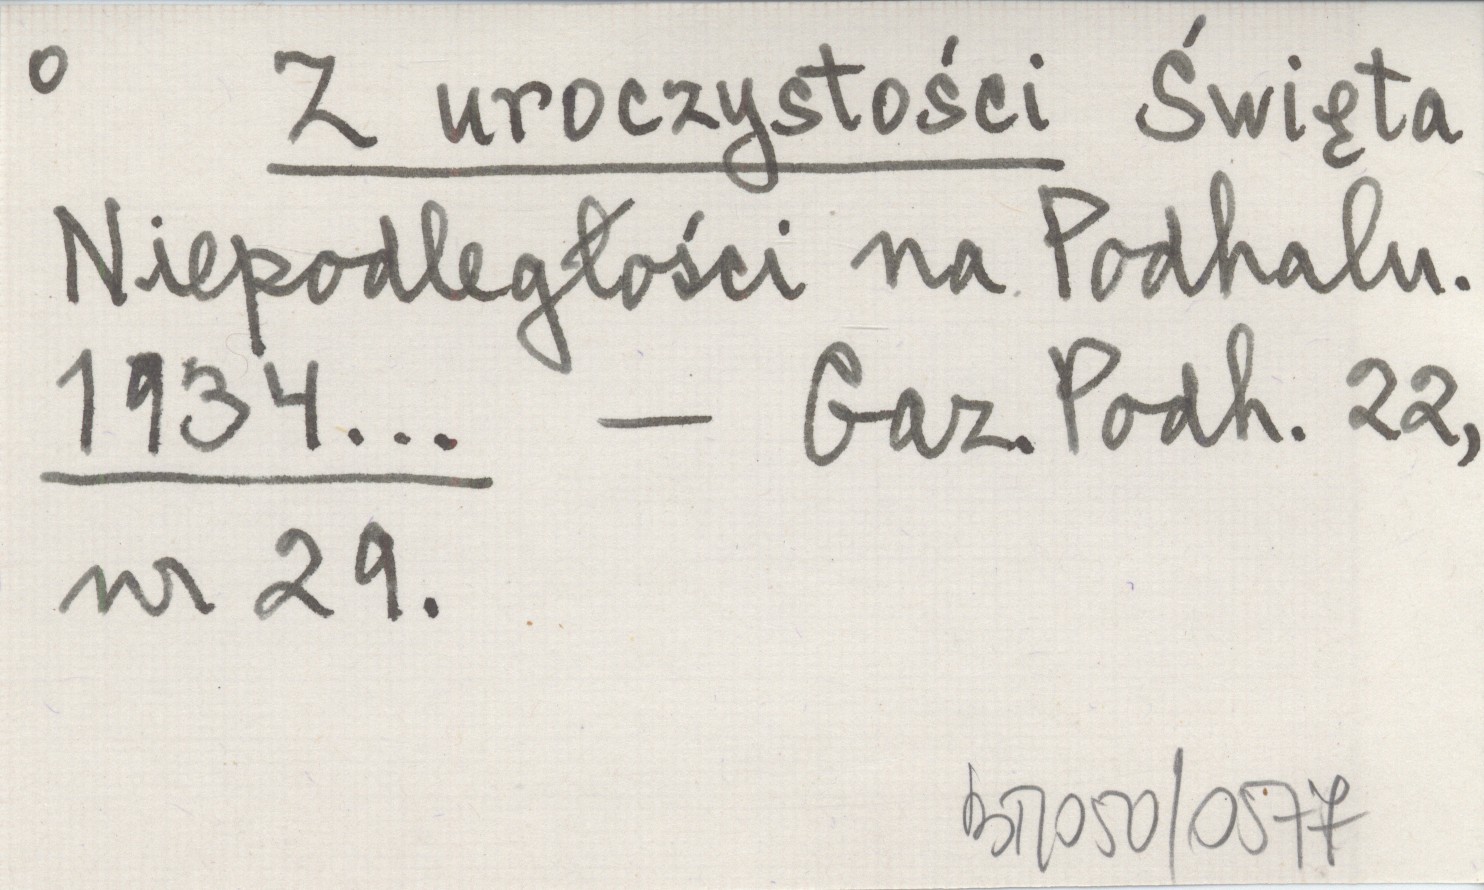 o Z uroczystości Święta
Niepodległości na Podhalu.
1934... — Gaz. Podh. 22,
nr 29.
bn050/0577